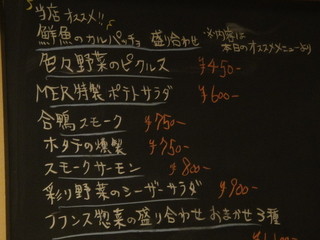 当店 オススメ!!
鮮魚のカルパッチョ 盛り合わせ ※内容は
本日のオススメメニューより
色々野菜のピクルス ¥450-
MER特製 ポテトサラダ ¥600-
合鴨スモーク ¥750-
ホタテの燻製 ¥750-
スモークサーモン ¥800-
彩り野菜のシーザーサラダ ¥900-
フランス惣菜の盛り合わせ おまかせ3種